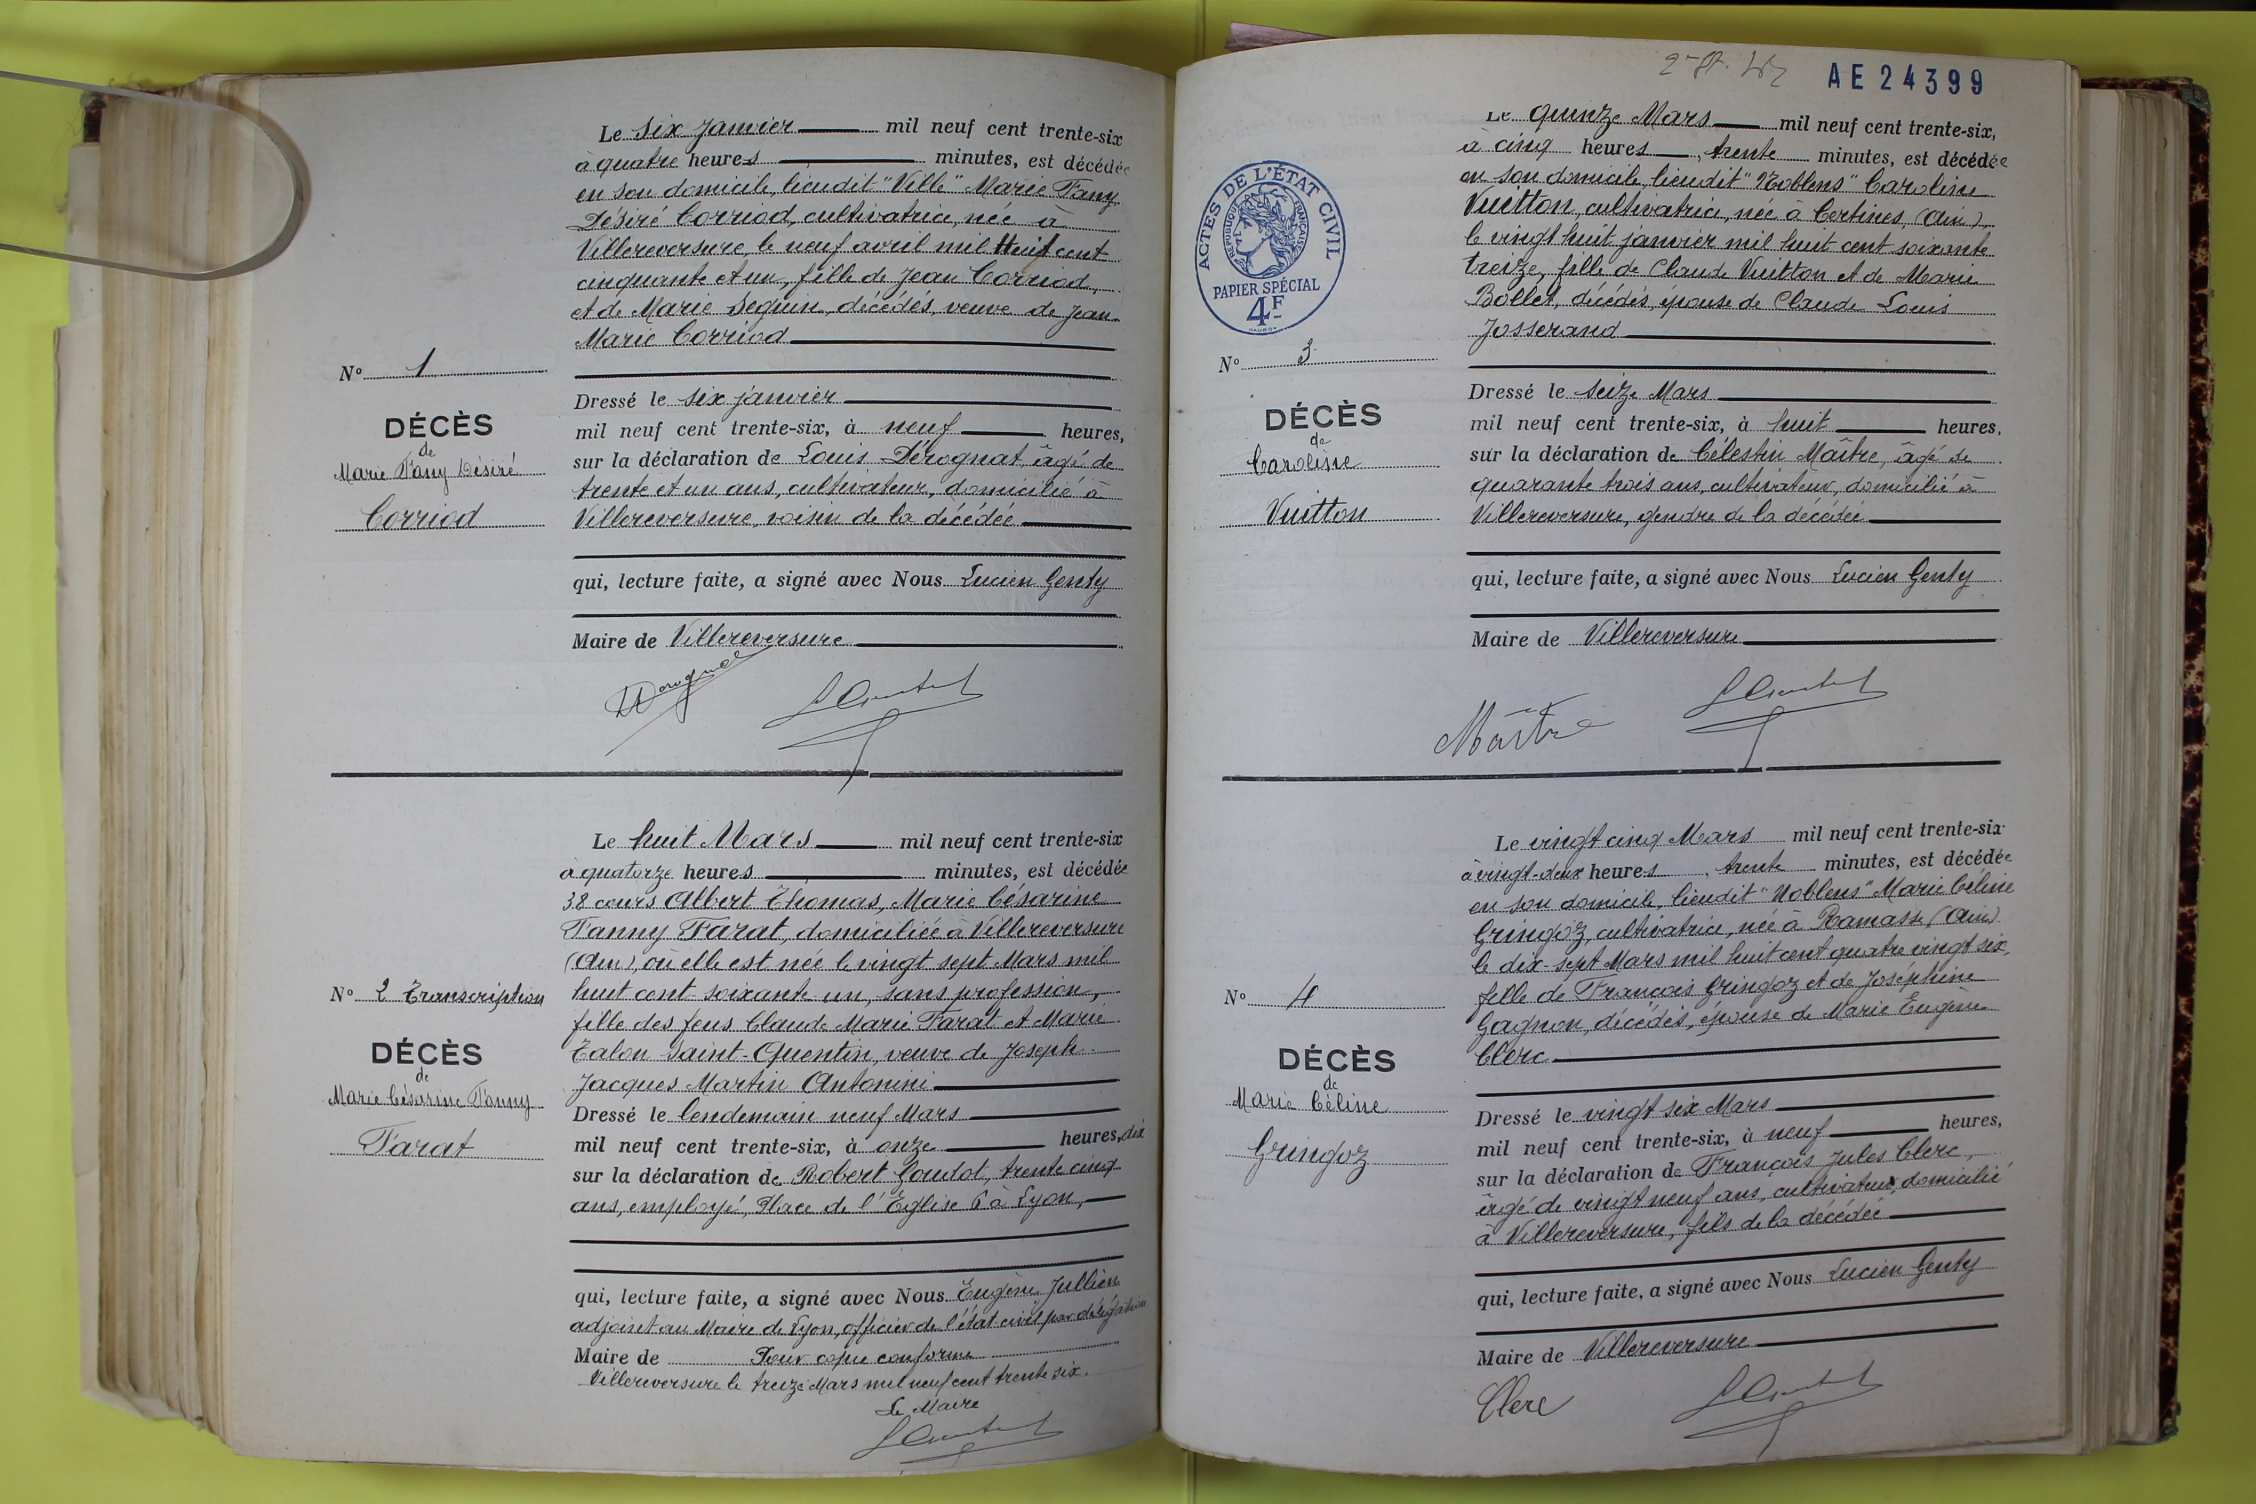 Le six janvier mil neuf cent trente-six
à quatre heures minutes, est décédée
en son domicile, lieudit "Ville" Marie Fany
Désiré Corriod, cultivatrice, née à
Villereversure, le neuf avril mil huit cent
cinquante et un, fille de Jean Corriod,
et de Marie Seguin, décédés, veuve de Jean
Marie Corriod
N° 1
DÉCÈS
de
Marie Fany Désiré
Corriod
Dressé le six janvier
mil neuf cent trente-six, à neuf heures,
sur la déclaration de Louis Dérognat, âgé de
trente et un ans, cultivateur, domicilié à
Villereversure, voisin de la décédée
qui, lecture faite, a signé avec Nous Lucien Genty
Maire de Villereversure
Le huit Mars mil neuf cent trente-six
à quatorze heures minutes, est décédée
38 cours Albert Thomas, Marie Césarine
Fanny Farat, domiciliée à Villereversure
(Ain), où elle est née le vingt sept Mars mil
huit cent soixante un, sans profession,
fille des feus Claude Marie Farat et Marie
Talon Saint-Quentin, veuve de Joseph
Jacques Martin Antonini
N° 2 Transcription
DÉCÈS
de
Marie Césarine Fanny
Farat
Dressé le lendemain neuf Mars
mil neuf cent trente-six, à onze heures, dix
sur la déclaration de Robert Goudot, trente cinq
ans, employé, Place de l'Eglise 6 à Lyon,
qui, lecture faite, a signé avec Nous Eugène Jullien
adjoint au Maire de Lyon, officier de l'état civil par délégation
Maire de Pour copie conforme
Villereversure le treize Mars mil neuf cent trente six.
Le Maire
AE 24399
ACTES DE L'ÉTAT CIVIL
RÉPUBLIQUE FRANÇAISE
PAPIER SPÉCIAL
4F
Le quinze Mars mil neuf cent trente-six,
à cinq heures, trente minutes, est décédée
en son domicile, lieudit "Noblens" Caroline
Vuitton, cultivatrice, née à Certines, (Ain),
le vingt huit janvier mil huit cent soixante
treize, fille de Claude Vuitton et de Marie
Bollet, décédés, épouse de Claude Louis
Josserand
N° 3
DÉCÈS
de
Caroline
Vuitton
Dressé le seize Mars
mil neuf cent trente-six, à huit heures,
sur la déclaration de Célestin Maître, âgé de
quarante trois ans, cultivateur, domicilié à
Villereversure, gendre de la décédée
qui, lecture faite, a signé avec Nous Lucien Genty
Maire de Villereversure
Maître
Le vingt cinq Mars mil neuf cent trente-six
à vingt-deux heures, trente minutes, est décédée
en son domicile, lieudit "Noblens" Marie Céline
Gringoz, cultivatrice, née à Ramasse, (Ain)
le dix-sept Mars mil huit cent quatre vingt six,
fille de François Gringoz et de Joséphine
Gagnon, décédés, épouse de Marie Eugène
Clerc
N° 4
DÉCÈS
de
Marie Céline
Gringoz
Dressé le vingt six Mars
mil neuf cent trente-six, à neuf heures,
sur la déclaration de François Jules Clerc,
âgé de vingt neuf ans, cultivateur, domicilié
à Villereversure, fils de la décédée
qui, lecture faite, a signé avec Nous Lucien Genty
Maire de Villereversure
Clerc